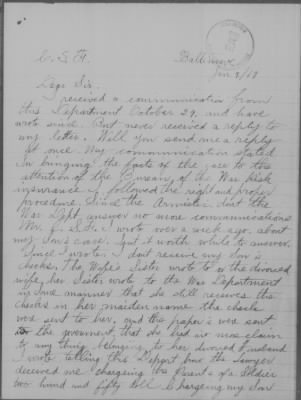 U.S.A.
Baltimore
Jan 9/19
Dear Sir.
I received a communication from
this Department October 29, and have
wrote since. But never received a reply to
my letter. Will you send me a reply
at once. My communication stated
In bringing the facts of the case to the
attention of the Bureau of the War Risk
insurance I followed the right and proper
procedure. Since the Armistice dont the
War Dept answer no more communications
Mr. I wrote over a week ago. about
my Son's case. Isnt it worth while to answer.
Since I wrote. I dont receive my Son's
checks. The Wife's Sister wrote to the divorced
wife, her Sister wrote to the War Department
in some manner that she still receives the
checks in her maiden name the checks
was sent to her. and the paper's were sent
to the goverment, that she had no more claim
to any thing belonging to her divorced Husband
I wrote telling this Depart how the Lawyer
deceived me chargeing the Parents of a Soldier
two hund and fifty doll chargeing my Son